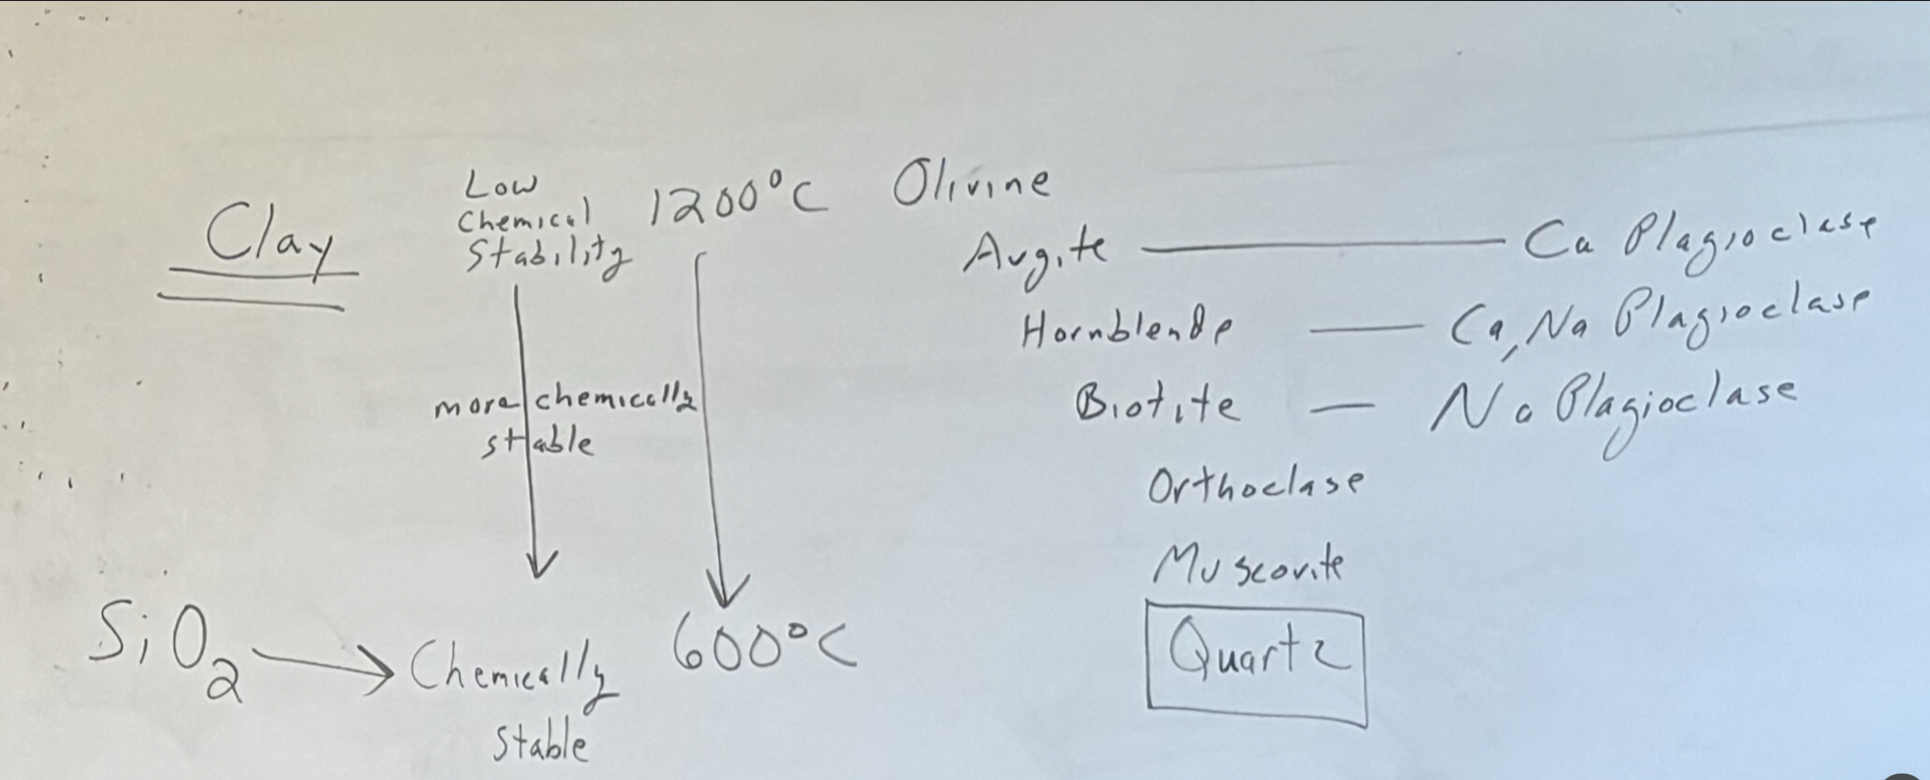 Clay
Low
Chemical
Stability
more chemically
stable
SiO₂
Chemically
Stable
1200°C
600°C
Olivine
Augite Ca Plagioclase
Hornblende Ca, Na Plagioclase
Biotite Na Plagioclase
Orthoclase
Muscovite
Quartz